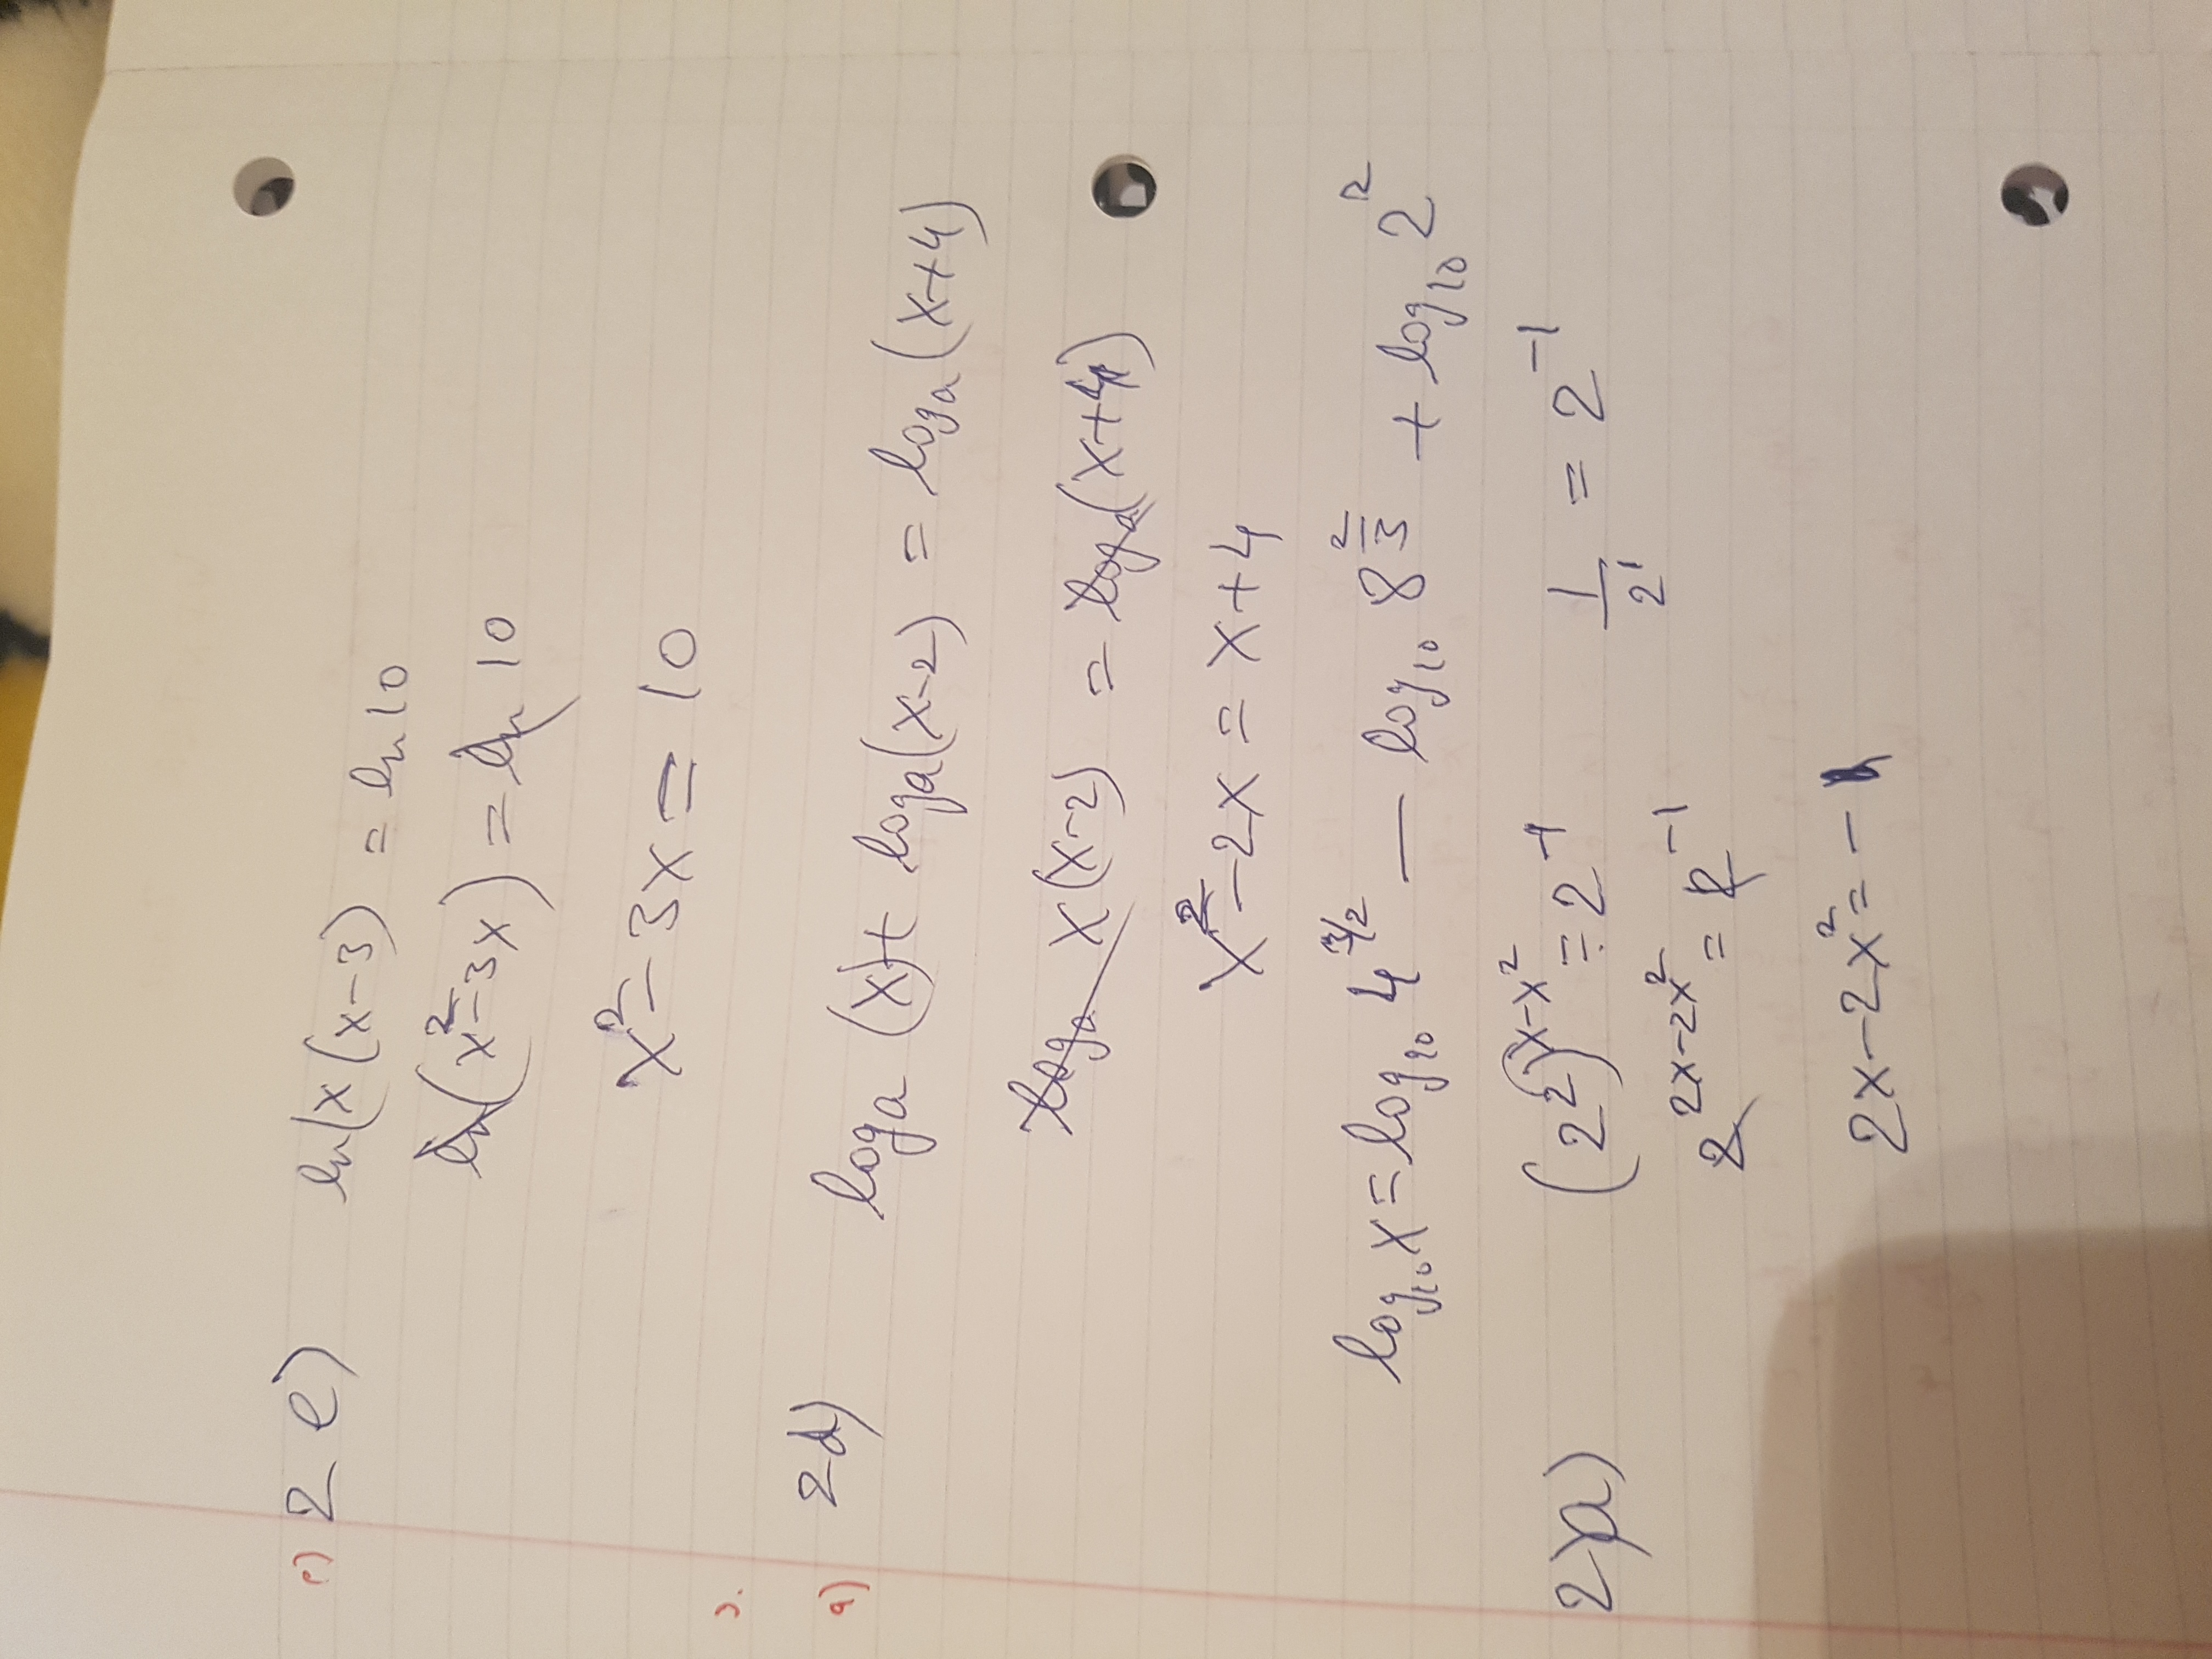 e) 2 e) ln(x(x-3) = ln 10
ln(x²-3x) = ln 10
x²-3x = 10
3.
a) 2d) loga (x) + loga(x-2) = loga(x+4)
loga x(x-2) = loga(x+4)
x²-2x = x+4
log₁₀x = log₁₀ 4^3/2 - log₁₀ 8^2/3 + log₁₀ 2²
2)a) (2²)^x-x² = 2^-1 1/2¹ = 2^-1
2^2x-2x² = 2^-1
2x-2x² = -1